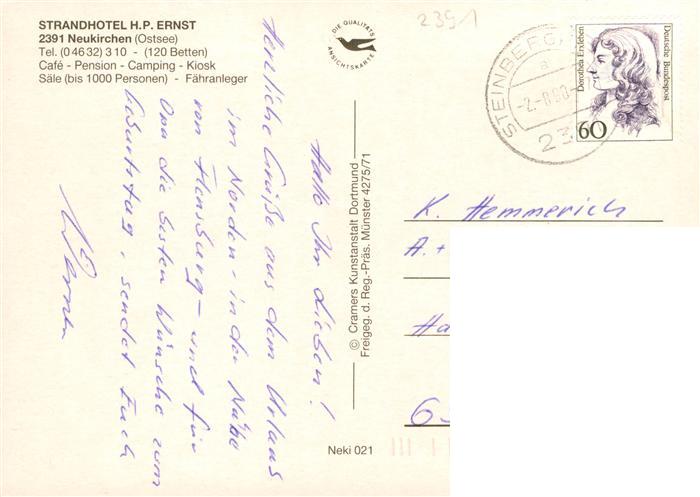 STRANDHOTEL H.P. ERNST
2391 Neukirchen (Ostsee)
Tel. (0 46 32) 3 10 - (120 Betten)
Café - Pension - Camping - Kiosk
Säle (bis 1000 Personen) - Fähranleger
DIE QUALITÄTS
ANSICHTSKARTE
2391
STEINBERG
a
-2.-8.90
23
Dorothea Erxleben
Deutsche Bundespost
60
Hallo Ihr Lieben!
Herzliche Grüße aus dem Urlaub
im Norden - in der Nähe
von Flensburg - und für
Opa die besten Wünsche zum
Geburtstag, sendet Euch
Werner
© Cramers Kunstanstalt Dortmund
Freigeg. d. Reg.-Präs. Münster 4275/71
Neki 021
K. Hemmerich
A. +
Ha
6